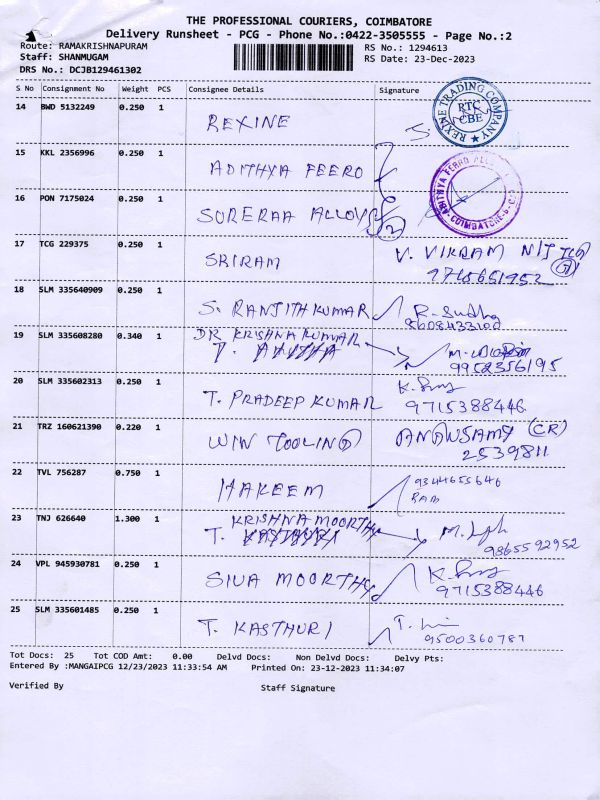 THE PROFESSIONAL COURIERS, COIMBATORE
Delivery Runsheet - PCG - Phone No.:0422-3505555 - Page No.:2
Route: RAMAKRISHNAPURAM RS No.: 1294613
Staff: SHANMUGAM RS Date: 23-Dec-2023
DRS No.: DCJB129461302
S No Consignment No Weight PCS Consignee Details Signature
14 BWD 5132249 0.250 1 REXINE
REXINE TRADING COMPANY
RTC
CBE
15 KKL 2356996 0.250 1 ADITHYA FEERO
ADITHYA FERRO ALLOY
COIMBATORE
16 PON 7175024 0.250 1 SORERAA ALLOYS
2
17 TCG 229375 0.250 1 SRIRAM V. VIKRAM
18 SLM 335640909 0.250 1 S. RANJITH KUMAR R. Sudha
19 SLM 335608280 0.340 1 DR KRISHNA KUMAR
9952356195
20 SLM 335602313 0.250 1 T. PRADEEP KUMAR
9715388446
21 TRZ 160621390 0.220 1 WIN TOOLING (CR)
2539811
22 TVL 756287 0.750 1 HAKEEM 9344655646
RAM
23 TNJ 626640 1.300 1 KRISHNA MOORTHY
T.
9865592952
24 VPL 945930781 0.250 1 SIVA MOORTHY
9715388446
25 SLM 335601485 0.250 1 T. KASTHURI
9500360787
Tot Docs: 25 Tot COD Amt: 0.00 Delvd Docs: Non Delvd Docs: Delvy Pts:
Entered By :MANGAIPCG 12/23/2023 11:33:54 AM Printed On: 23-12-2023 11:34:07
Verified By Staff Signature